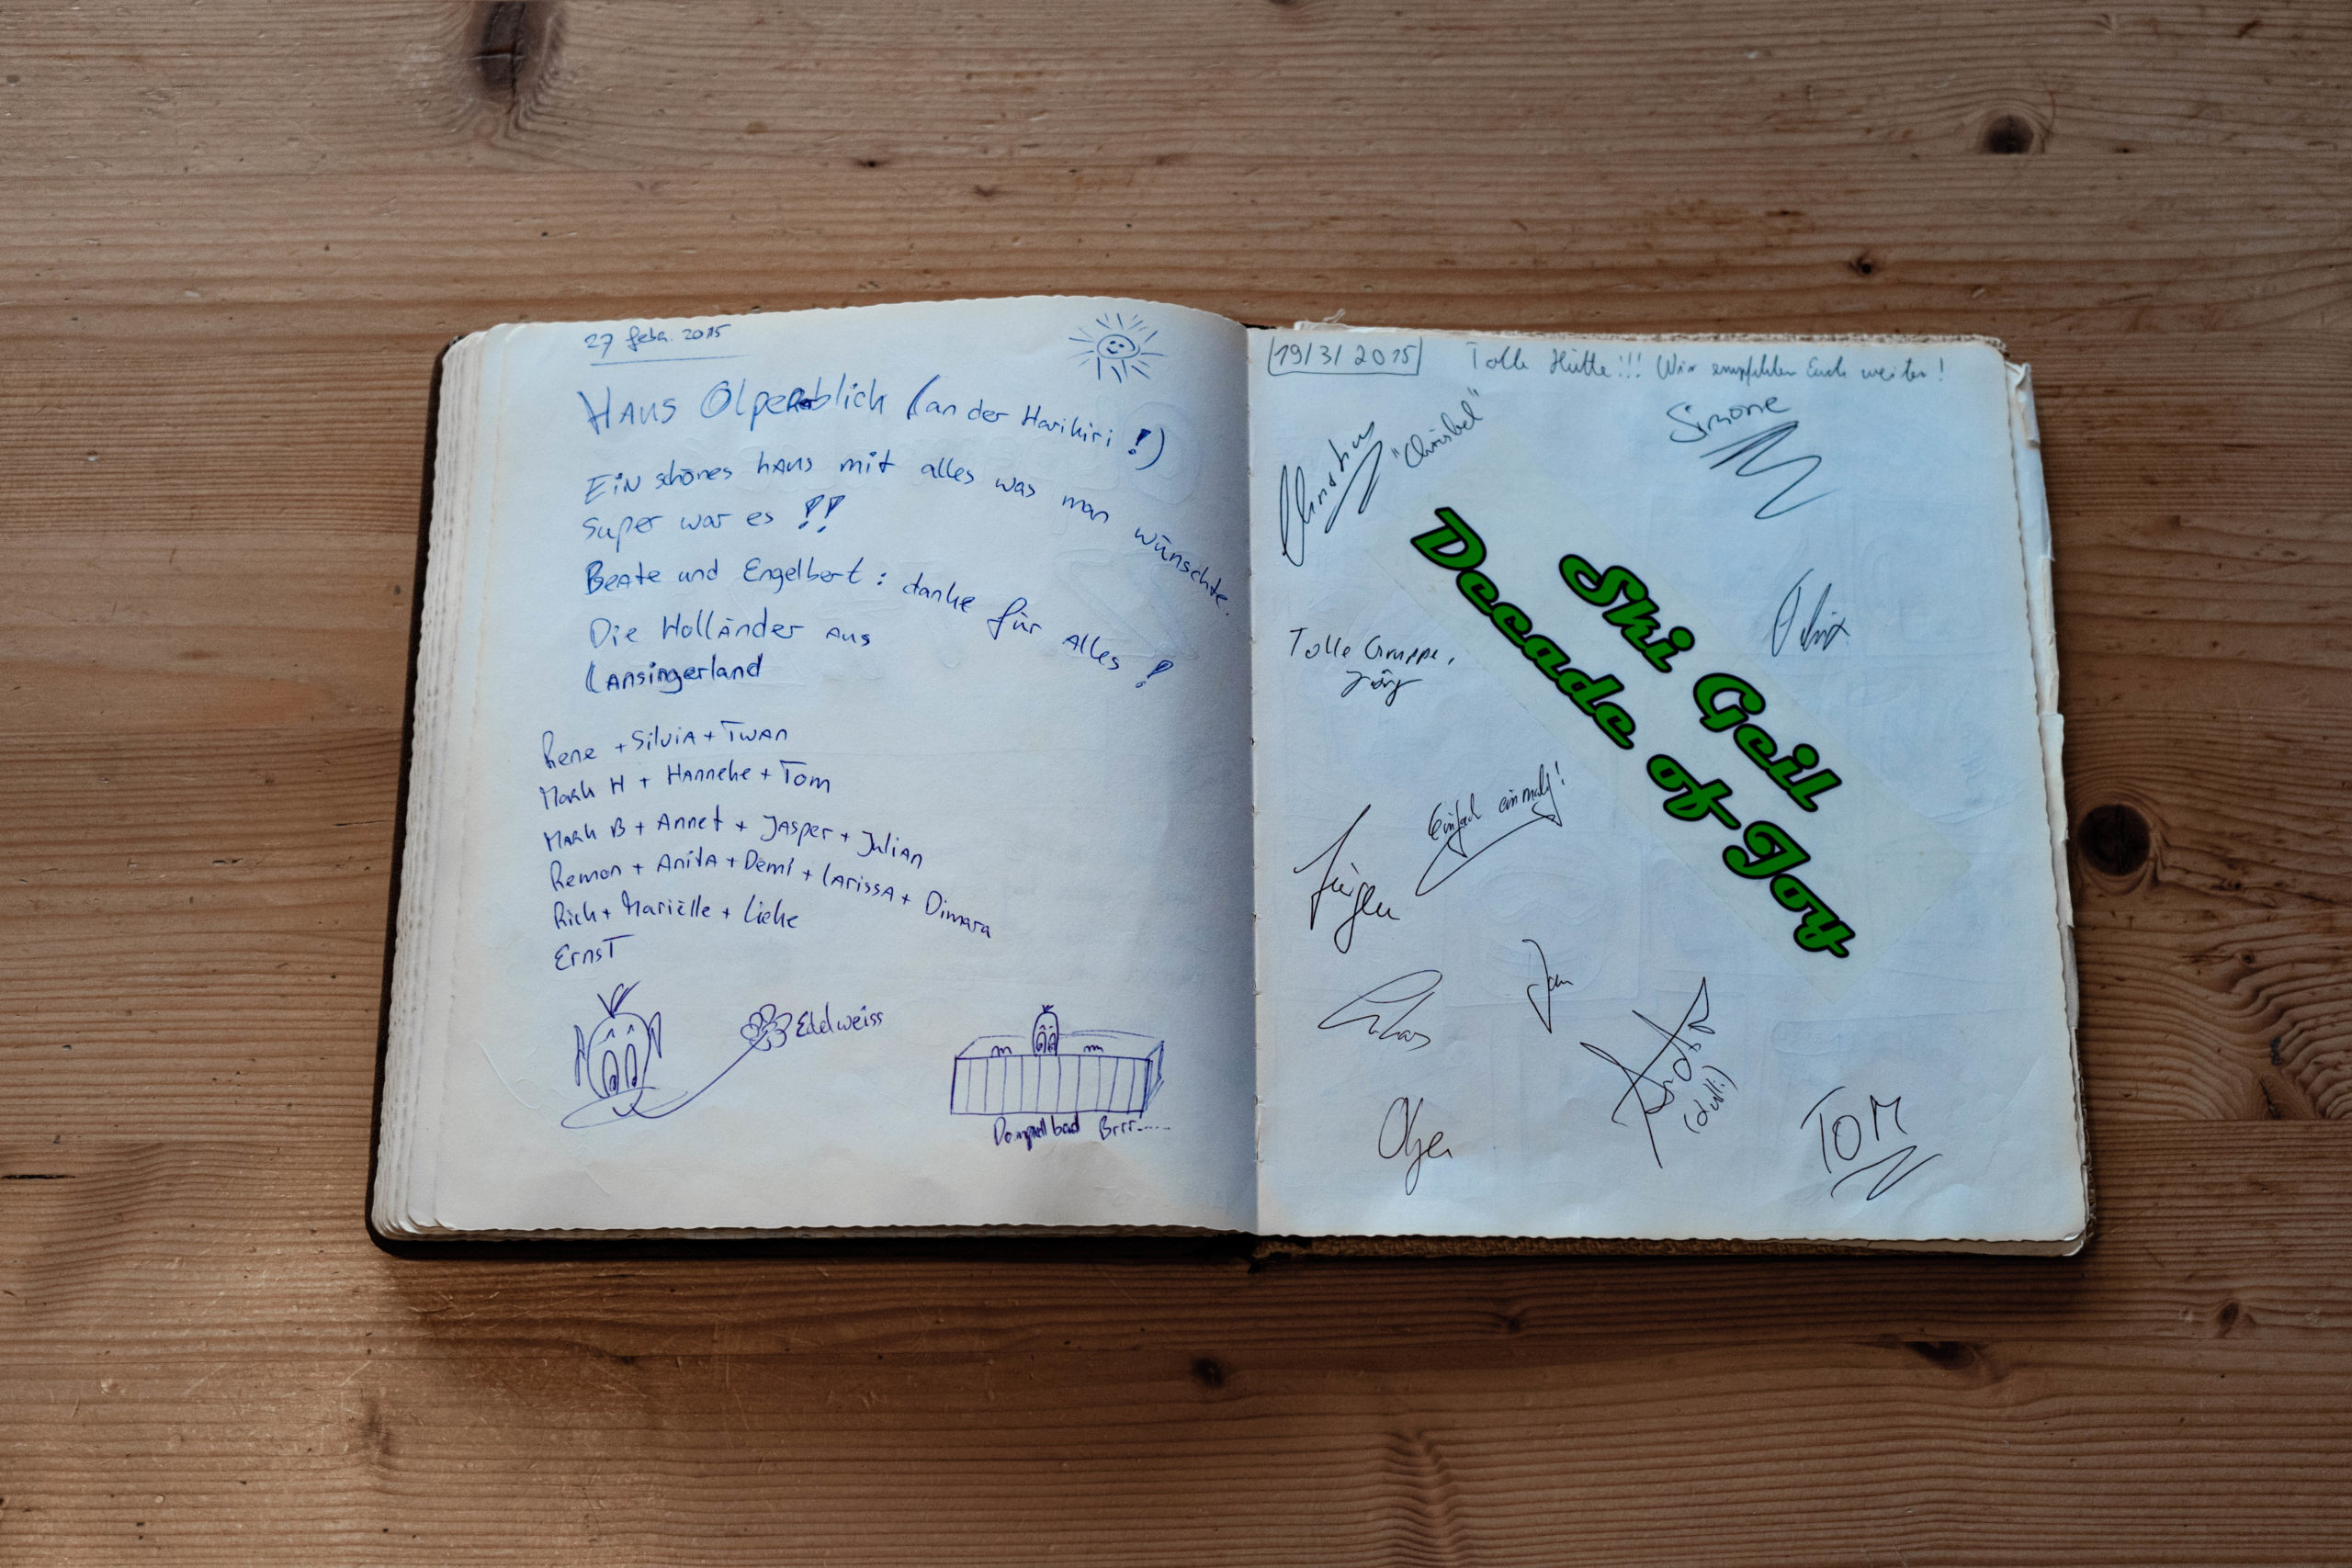 27 febr. 2015
HAUS Olpererblich (an der Harikiri!)
EiN schönes hAUS mit alles was man wünschte.
Super war es !!
BeAte und Engelbert: danke für Alles!
Die Holländer Aus
LAnsingerland
Rene + SilviA + TwAn
Mark H + HAnneke + Tom
MArk B + Annet + JAsper + JuliAn
Remon + AnitA + Demi + LArissA + Dimara
Rich + Mariëlle + Lieke
ErnsT
Edelweiss
Brrr.....
19/3/2015 Tolle Hütte!!! Wir empfehlen Euch weiter!
Christian "Christbel"
Simone
Ski Geil
Decade of Joy
Felix
Tolle Gruppe,
Jörg
Einfach einmalig!
Jürgen
Jan
Lukas
(dulli)
Holger
TOM